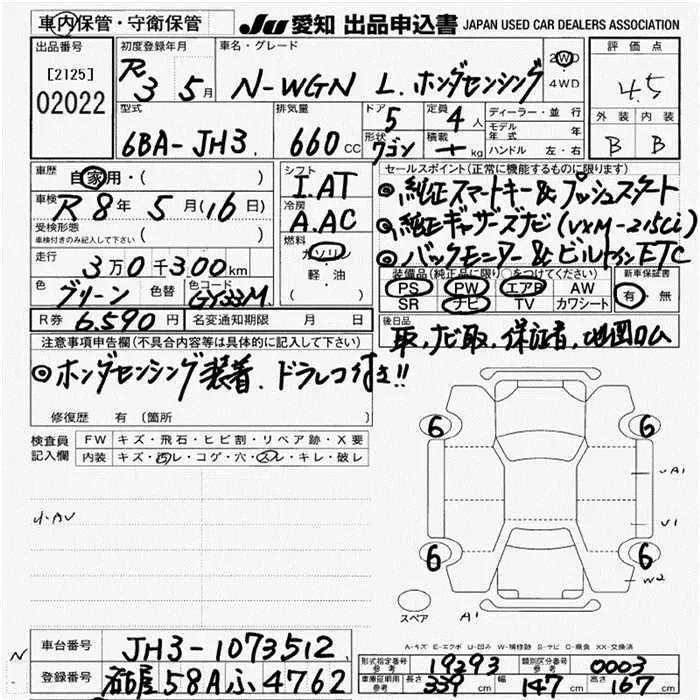 車内保管・守衛保管
JU 愛知 出品申込書 JAPAN USED CAR DEALERS ASSOCIATION
出品番号
[2125]
02022
初度登録年月
R3 5月
車名・グレード
N-WGN L. ホンダセンシング
2WD
・4WD
評価点
4.5
外装 内装
B B
型式
6BA-JH3.
排気量
660 CC
ドア
5
形状
ワゴン
定員
4人
積載
kg
ディーラー・並行
モデル年式 年
ハンドル 左・右
車歴 自家用・( )
車検 R8年 5月(16日)
受検形態
車検付きのみ記入して下さい ( )
走行 3万0千300km
色 グリーン 色替 色コード GY33M
シフト
I.AT
冷房
A.AC
燃料
ガソリン
・軽・油
( )
セールスポイント(正常に機能するものに限ります)
◎純正スマートキー&プッシュスタート
◎純正ギャザーズナビ(VXM-215Ci)
◎バックモニター&ビルトインETC
装備品(純正品に限り○をつけてください)
PS PW エアB AW
SR ナビ TV カワシート
新車保証書
有・無
R券 6.590円 名変通知期限 月 日
後日品
取,ナビ取,保証書,地図ROM
注意事項申告欄(不具合内容等は具体的に記入して下さい)
◎ホンダセンシング装着、ドラレコ付き!!
修復歴 有 〔箇所
検査員
記入欄
FW キズ・飛石・ヒビ割・リペア跡・X要
内装 キズ・凹レ・コゲ・穴・スレ・キレ・破レ
小AU
6 6
6 6
A1
U1
W2
A1
スペア
A-キズ E-エクボ U-凹み W-補修跡 S-サビ C-腐食 XX-交換済
N
車台番号 JH3-1073512
登録番号 名古屋 58A ふ 4762
形式指定番号 参考 19293
類別区分番号 参考 0003
車庫証明用 参考 長さ 339 cm 幅 147 cm 高さ 167 cm